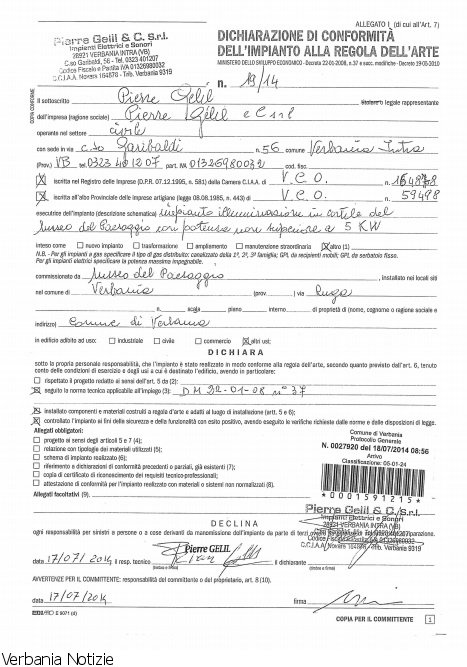 ALLEGATO I (di cui all'Art. 7)
Pierre Gelil & C. S.r.l.
Impianti Elettrici e Sonori
28921 VERBANIA INTRA (VB)
C.so Garibaldi, 56 - Tel. 0323 401207
Codice Fiscale e Partita IVA 01326980032
C.C.I.A.A. Novara 164878 - Trib. Verbania 9319
DICHIARAZIONE DI CONFORMITÀ
DELL'IMPIANTO ALLA REGOLA DELL'ARTE
MINISTERO DELLO SVILUPPO ECONOMICO - Decreto 22-01-2008, n.37 e succ. modifiche - Decreto 19-05-2010
n. 19/14
COPIA CONFORME
Il sottoscritto Pierre Gelil titolare o legale rappresentante
dell'impresa (ragione sociale) Pierre Gelil e C srl
operante nel settore civile
con sede in via c.so Garibaldi n. 56 comune Verbania Intra
(Prov.) VB tel. 0323 401207 part. IVA 01326980032 cod. fisc.
iscritta nel Registro delle Imprese (D.P.R. 07.12.1995, n. 581) della Camera C.I.A.A. di V.C.O. n. 164878
iscritta all'albo Provinciale delle Imprese artigiane (legge 08.08.1985, n. 443) di V.C.O. n. 59498
esecutrice dell'impianto (descrizione schematica) impianto illuminazione in cortile del
Museo del Paesaggio con potenza non superiore a 5 KW
inteso come nuovo impianto trasformazione ampliamento manutenzione straordinaria altro (1)
N.B. - Per gli impianti a gas specificare il tipo di gas distribuito: canalizzato della 1ª, 2ª, 3ª famiglia; GPL da recipienti mobili; GPL da serbatoio fisso.
Per gli impianti elettrici specificare la potenza massima impegnabile.
commissionato da Museo del Paesaggio, installato nei locali siti
nel comune di Verbania (prov. ) via Ruga
n. scala piano interno di proprietà di (nome, cognome o ragione sociale e
indirizzo) Comune di Verbania
in edificio adibito ad uso: industriale civile commercio altri usi:
DICHIARA
sotto la propria personale responsabilità, che l'impianto è stato realizzato in modo conforme alla regola dell'arte, secondo quanto previsto dall'art. 6, tenuto
conto delle condizioni di esercizio e degli usi a cui è destinato l'edificio, avendo in particolare:
rispettato il progetto redatto ai sensi dell'art. 5 da (2):
seguito la norma tecnica applicabile all'impiego (3): DM 22-01-08 n° 37
installato componenti e materiali costruiti a regola d'arte e adatti al luogo di installazione (artt. 5 e 6);
controllato l'impianto ai fini della sicurezza e della funzionalità con esito positivo, avendo eseguito le verifiche richieste dalle norme e dalle disposizioni di legge.
Allegati obbligatori:
progetto ai sensi degli articoli 5 e 7 (4);
relazione con tipologie dei materiali utilizzati (5);
schema di impianto realizzato (6);
riferimento a dichiarazioni di conformità precedenti o parziali, già esistenti (7);
copia di certificato di riconoscimento dei requisiti tecnico-professionali;
attestazione di conformità per l'impianto realizzato con materiali o sistemi non normalizzati (8).
Allegati facoltativi (9).
Comune di Verbania
Protocollo Generale
N. 0027920 del 18/07/2014 08:56
Arrivo
Classificazione: 05-01-24
*0001591215*
DECLINA
ogni responsabilità per sinistri a persone o a cose derivanti da manomissione dell'impianto da parte di terzi
riparazione.
Pierre Gelil & C. S.r.l.
Impianti Elettrici e Sonori
28921 VERBANIA INTRA (VB)
C.C.I.A.A. Novara 164878 - Trib. Verbania 9319
data 17/07/2014 il resp. tecnico Pierre GELIL il dichiarante
(timbro e firma) (timbro e firma)
AVVERTENZE PER IL COMMITTENTE: responsabilità del committente o del proprietario, art. 8 (10).
data 17/07/2014 firma
E 9071 (d) COPIA PER IL COMMITTENTE 1
Verbania Notizie